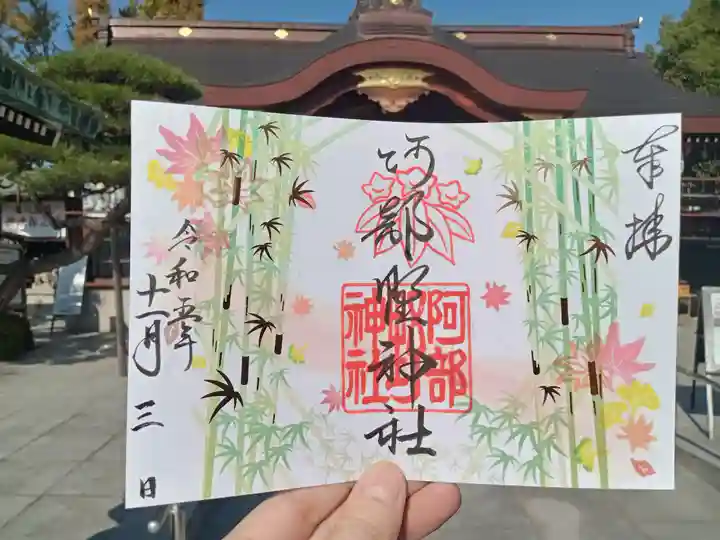 奉拝
阿部野神社
阿部野神社
令和五年
十一月
三日